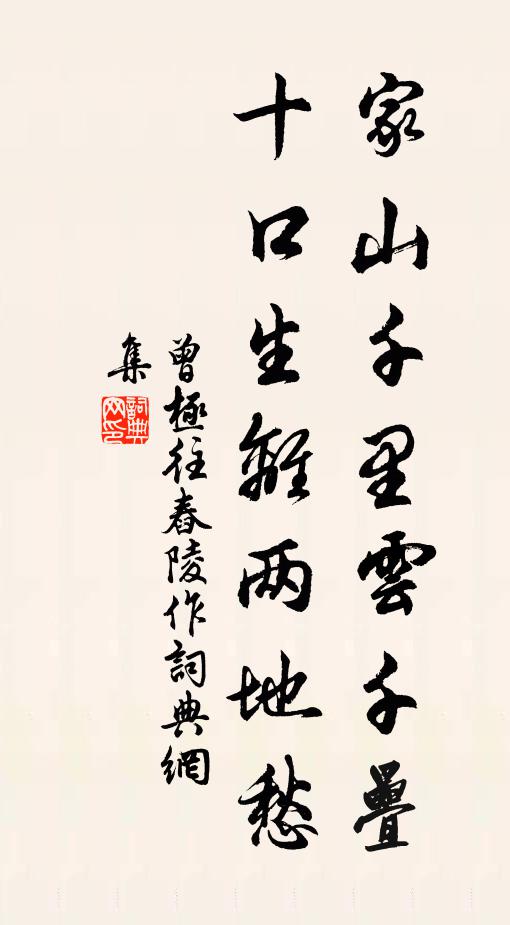 家山千里雲千疊
十口生離两地愁
曾極往舂陵作詞典網
集
詞典网印